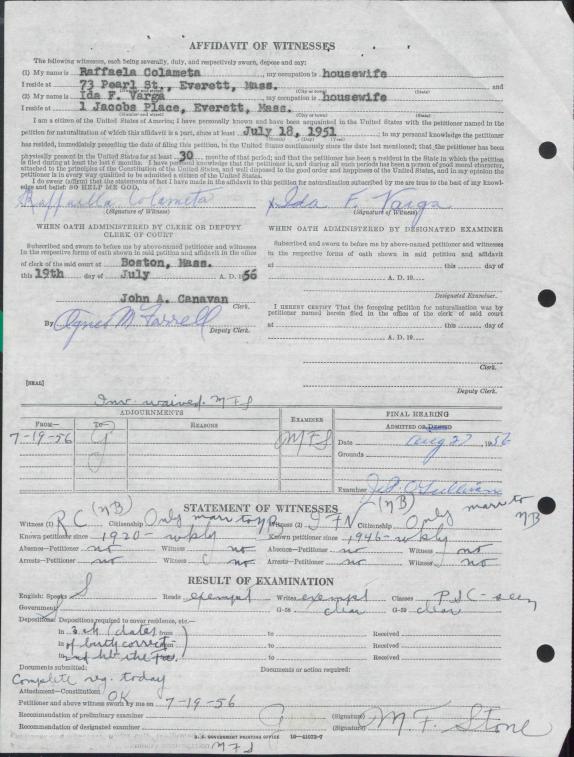 AFFIDAVIT OF WITNESSES
The following witnesses, each being severally, duly, and respectively sworn, depose and say:
(1) My name is Raffaela Colameta, my occupation is housewife
I reside at 73 Pearl St., Everett, Mass. and
(2) My name is Ida F. Varga, my occupation is housewife
I reside at 1 Jacobs Place, Everett, Mass.
I am a citizen of the United States of America; I have personally known and have been acquainted in the United States with the petitioner named in the
petition for naturalization of which this affidavit is a part, since at least July 18, 1951 to my personal knowledge the petitioner
has resided, immediately preceding the date of filing this petition, in the United States continuously since the date last mentioned; that the petitioner has been
physically present in the United States for at least 30 months of that period; and that the petitioner has been a resident of the State in which the petition
is filed during at least the last 6 months. I have personal knowledge that the petitioner is, and during all such periods has been a person of good moral character,
attached to the principles of the Constitution of the United States, and well disposed to the good order and happiness of the United States, and in my opinion the
petitioner is in every way qualified to be admitted a citizen of the United States.
I do swear (affirm) that the statements of fact I have made in the affidavit to this petition for naturalization subscribed by me are true to the best of my knowl-
edge and belief: SO HELP ME GOD.
Raffaella Colameta x Ida F. Varga
(Signature of Witness) (Signature of Witness)
WHEN OATH ADMINISTERED BY CLERK OR DEPUTY
CLERK OF COURT
Subscribed and sworn to before me by above-named petitioner and witnesses
in the respective forms of oath shown in said petition and affidavit in the office
of clerk of the said court at Boston, Mass.
this 19th day of July A. D. 1956
John A. Canavan
Clerk.
By Agnes M Farrell
Deputy Clerk.
[SEAL]
WHEN OATH ADMINISTERED BY DESIGNATED EXAMINER
Subscribed and sworn to before me by above-named petitioner and witnesses
in the respective forms of oath shown in said petition and affidavit at
this day of
A. D. 19
Designated Examiner.
I HEREBY CERTIFY That the foregoing petition for naturalization was by
petitioner named herein filed in the office of the clerk of said court
at this day of
A. D. 19
Clerk.
Deputy Clerk.
Inv. waived. MFS
ADJOURNMENTS
FROM— TO— REASONS EXAMINER
7-19-56 MFS
FINAL HEARING
ADMITTED OR DENIED
Date Aug 27, 1956
Grounds
Examiner O'Sullivan
STATEMENT OF WITNESSES
(NB) (NB)
Witness (1) RC Citizenship Only marr to Witness (2) IFV Citizenship Only marr to NB
Known petitioner since 1920- wkly Known petitioner since 1946- wkly
Absence—Petitioner no Witness no Absence—Petitioner no Witness no
Arrests—Petitioner no Witness no Arrests—Petitioner no Witness no
RESULT OF EXAMINATION
English: Speaks S Reads exempt Writes exempt Classes PSC-seen
Government G-58 clear G-59 clear
Depositions: Depositions required to cover residence, etc.—
In 3 ch (dates from to Received
In of birth correct- to Received
In to Received
Documents submitted: Documents or action required:
Complete reg. today
Attachment—Constitution: OK
Petitioner and above witness sworn by me on 7-19-56
Recommendation of preliminary examiner (Signature) M. F. Stone
Recommendation of designated examiner (Signature)
U. S. GOVERNMENT PRINTING OFFICE 16—41073-7
MFS